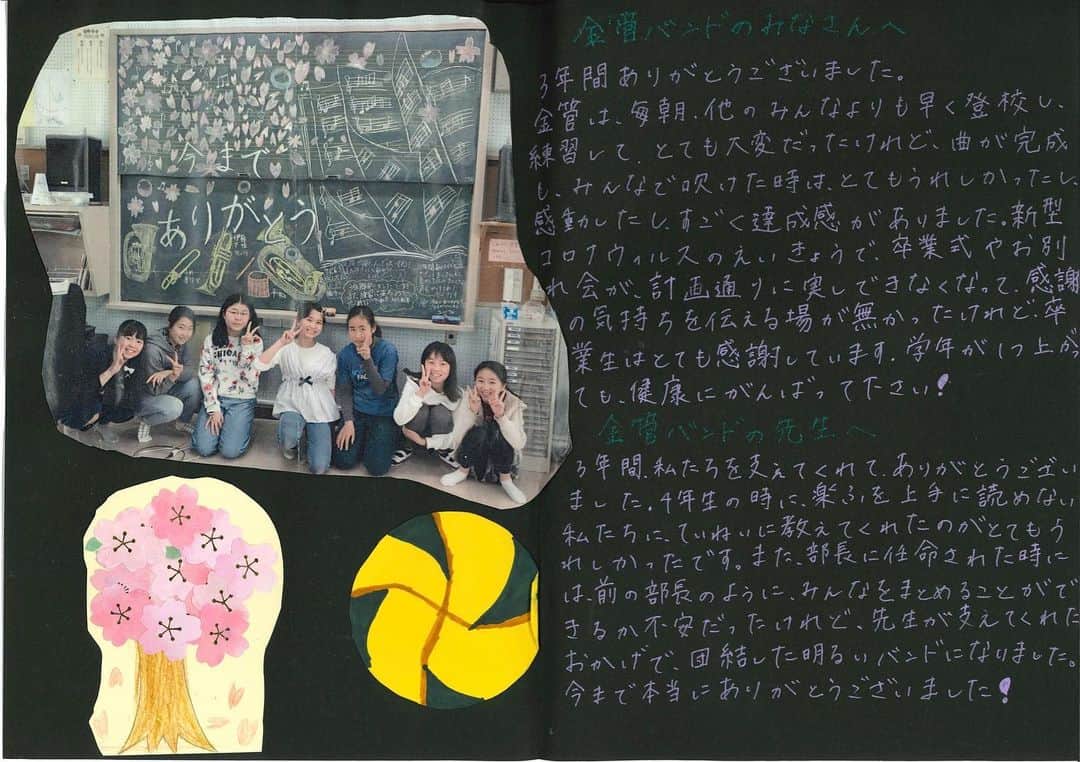 今まで
ありがとう
金管バンドのみなさんへ
3年間ありがとうございました。
金管は、毎朝、他のみんなよりも早く登校し、
練習して、とても大変だったけれど、曲が完成
し、みんなで吹けた時は、とてもうれしかったし、
感動したし、すごく達成感がありました。新型
コロナウィルスのえいきょうで、卒業式やお別
れ会が、計画通りに実しできなくなって、感謝
の気持ちを伝える場が無かったけれど、卒
業生はとても感謝しています。学年が1つ上がっ
ても、健康にがんばって下さい!
金管バンドの先生へ
3年間、私たちを支えてくれて、ありがとうござい
ました。4年生の時に、楽ふを上手に読めない
私たちに、ていねいに教えてくれたのがとてもう
れしかったです。また、部長に任命された時に
は、前の部長のように、みんなをまとめることがで
きるか不安だったけれど、先生が支えてくれた
おかげで、団結した明るいバンドになりました。
今まで本当にありがとうございました!